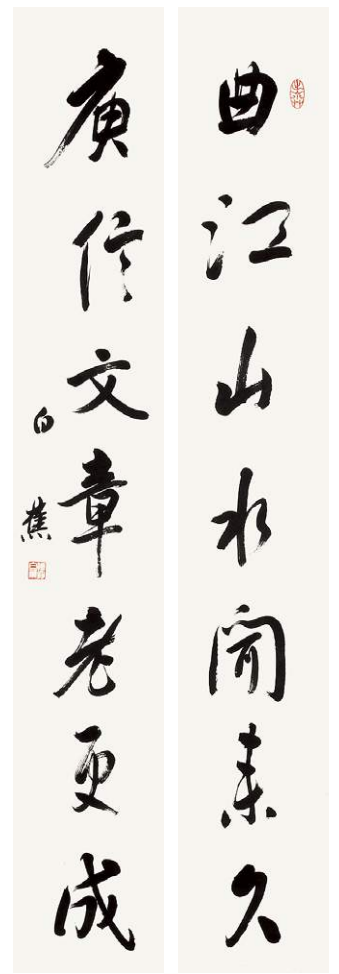 曲江山水聞來久
庾信文章老更成
白蕉